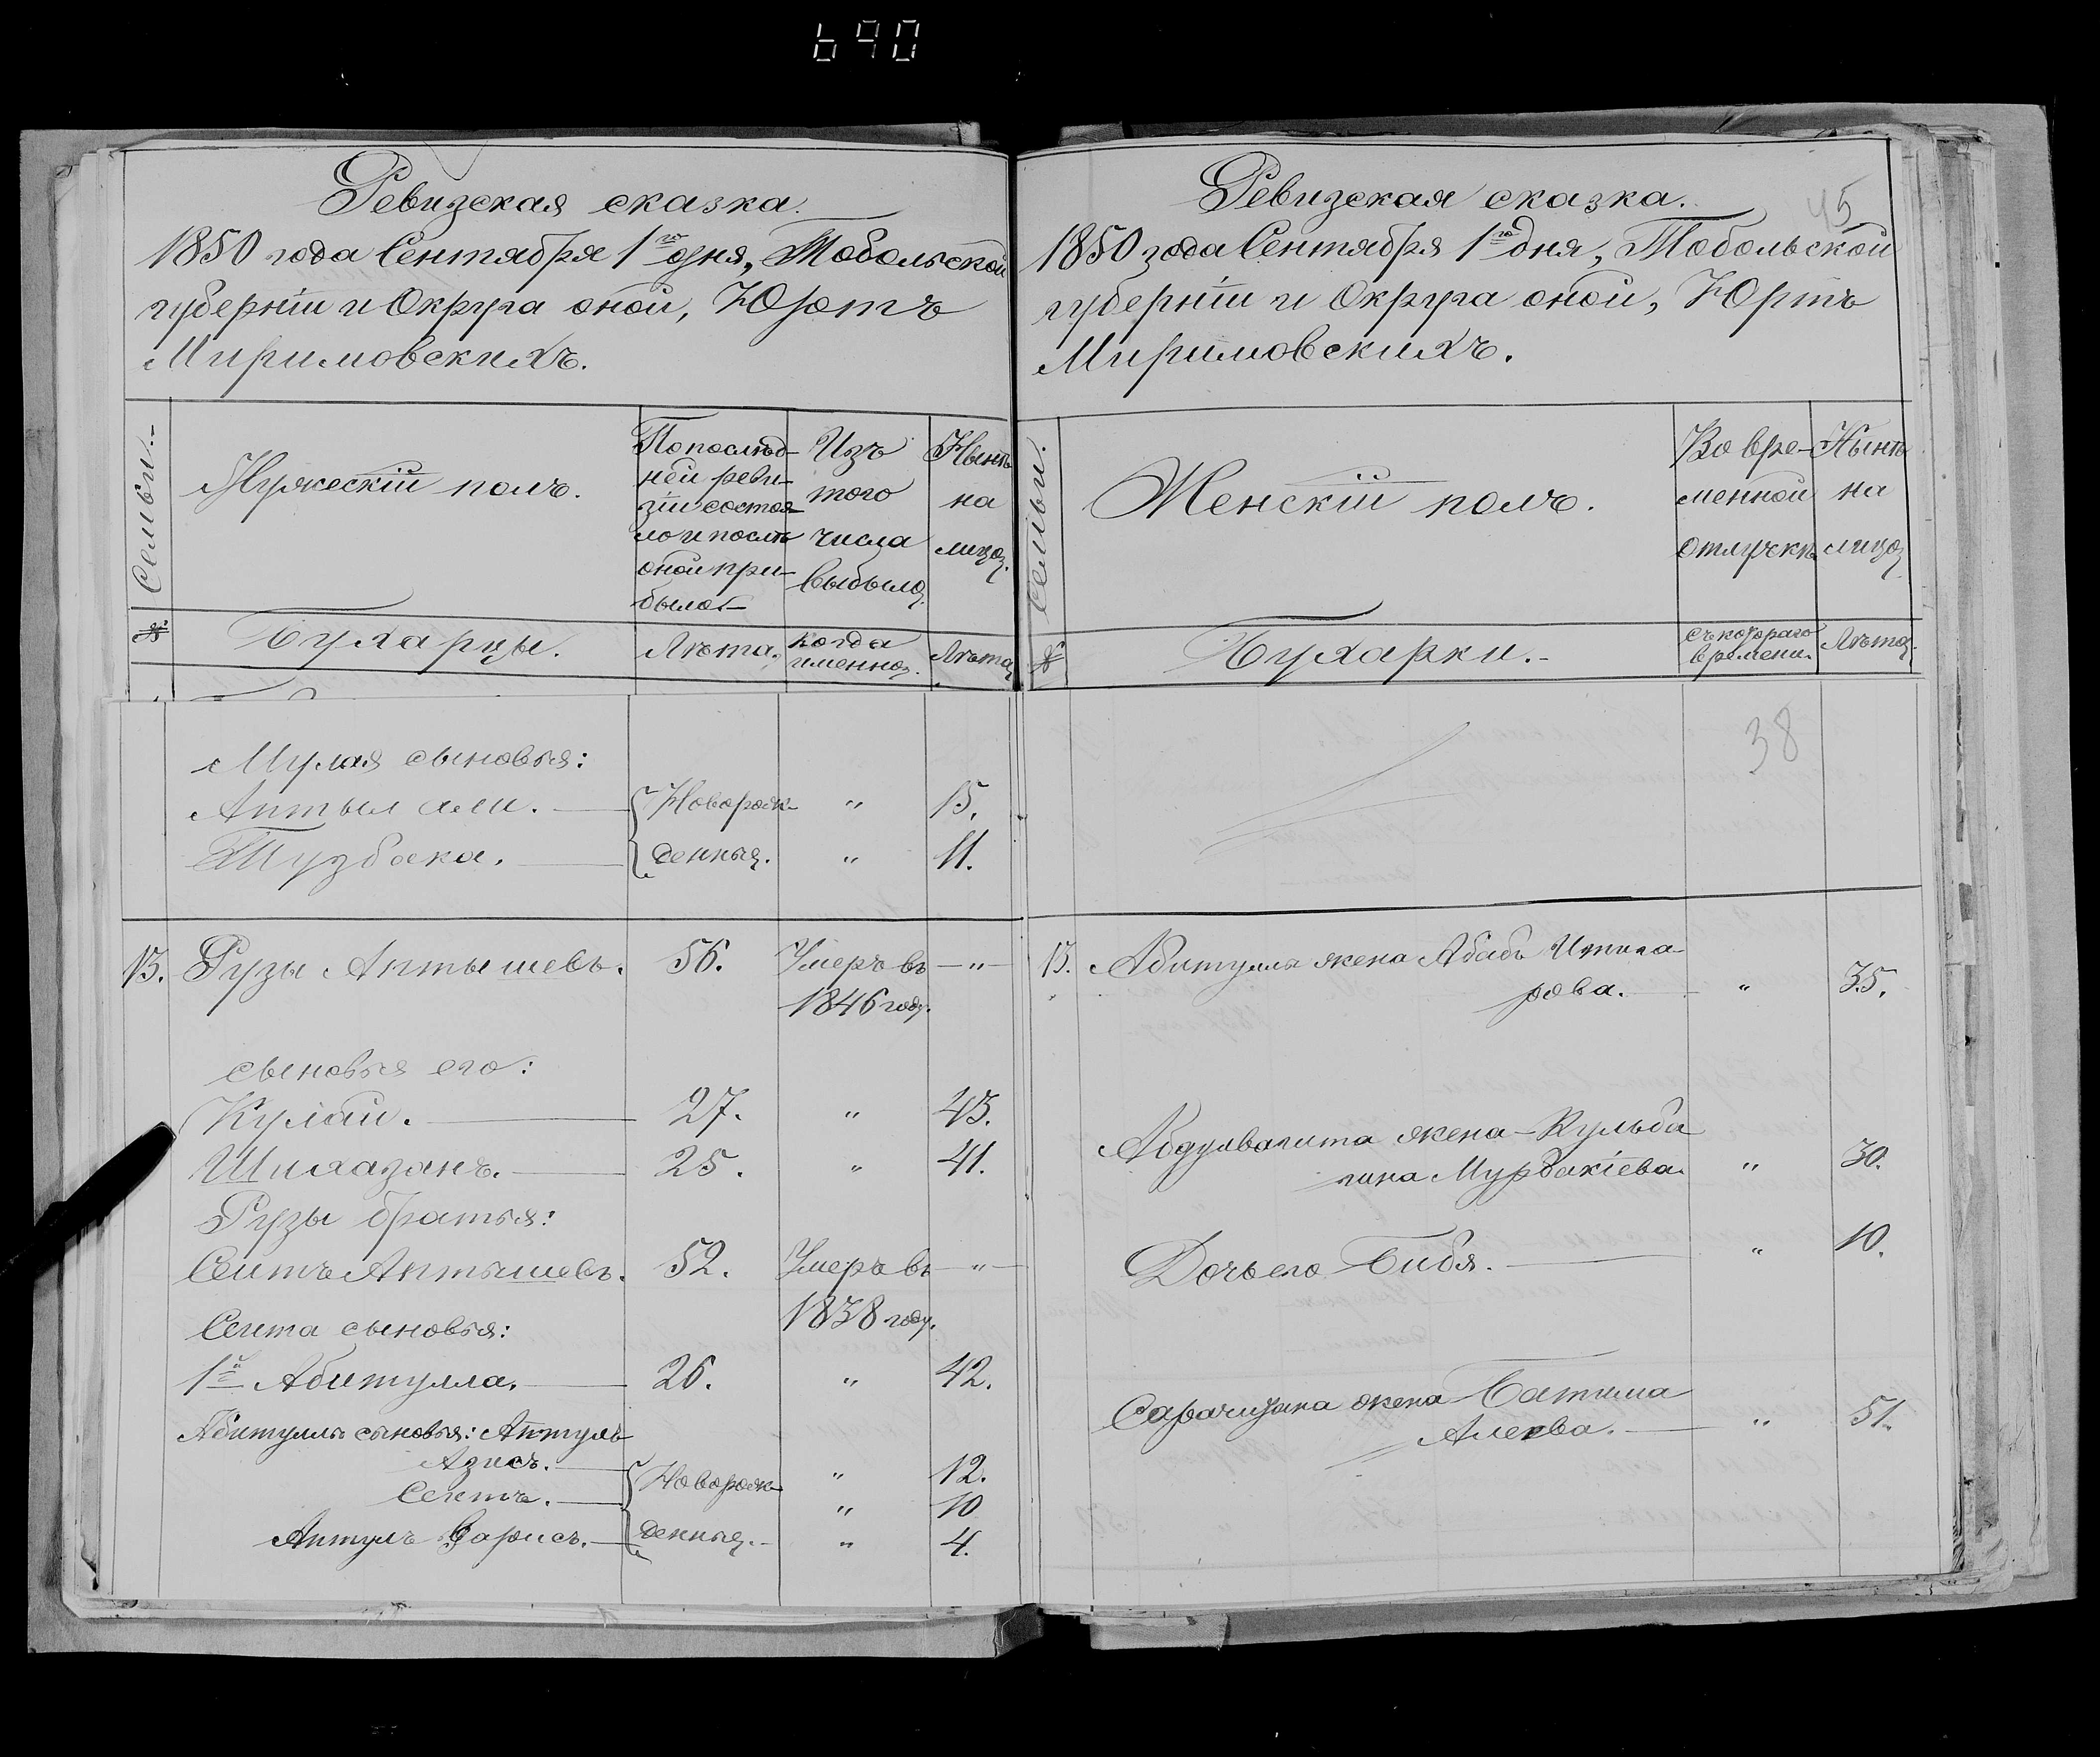 690
Ревизская сказка.
1850 года Сентября 1го дня, Тобольской
губернiи и Округа оной, Юртъ
Миримовскихъ.
Семьи.
Мужескiй полъ.
По послѣд-
ней реви-
зiи состоя-
ло и послѣ
оной при-
было.
Изъ
того
числа
выбыло.
Нынѣ
на
лицо.
№
Бухарцы.
Лѣта.
когда
именно.
Лѣта
Мулая сыновья:
Аптыл али. Новорож- " 15.
Тузбака. денныя. " 11.
13. Рузы Аптышевъ. 56. Умеръ въ — " —
1846 году.
сыновья его:
Кулай. 27. " 43.
Шихазанъ. 25. " 41.
Рузы братья:
Сеитъ Аптышевъ. 52. Умеръ въ — " —
1838 году.
Сеита сыновья:
1й Абитулла. 26. " 42.
Абитуллы сыновья: Аптулъ
Азисъ. Новорож- " 12.
Сеитъ. " 10
Аптулъ Варисъ. денныя. " 4.
Ревизская сказка.
45
1850 года Сентября 1го дня, Тобольской
губернiи и Округа оной, Юртъ
Миримовскихъ.
Семьи.
Женскiй полъ.
Во вре-
менной
отлучкѣ
Нынѣ
на
лицо
№
Бухарки.
съ котораго
времени.
Лѣта.
38
13. Абитуллы жена Абабъ
рова. " 35.
Абдулвагита жена Кульби
гина Мурбакiева. " 30.
Дочь его Бибя. " 10.
жена Батима
Алеева. " 51.